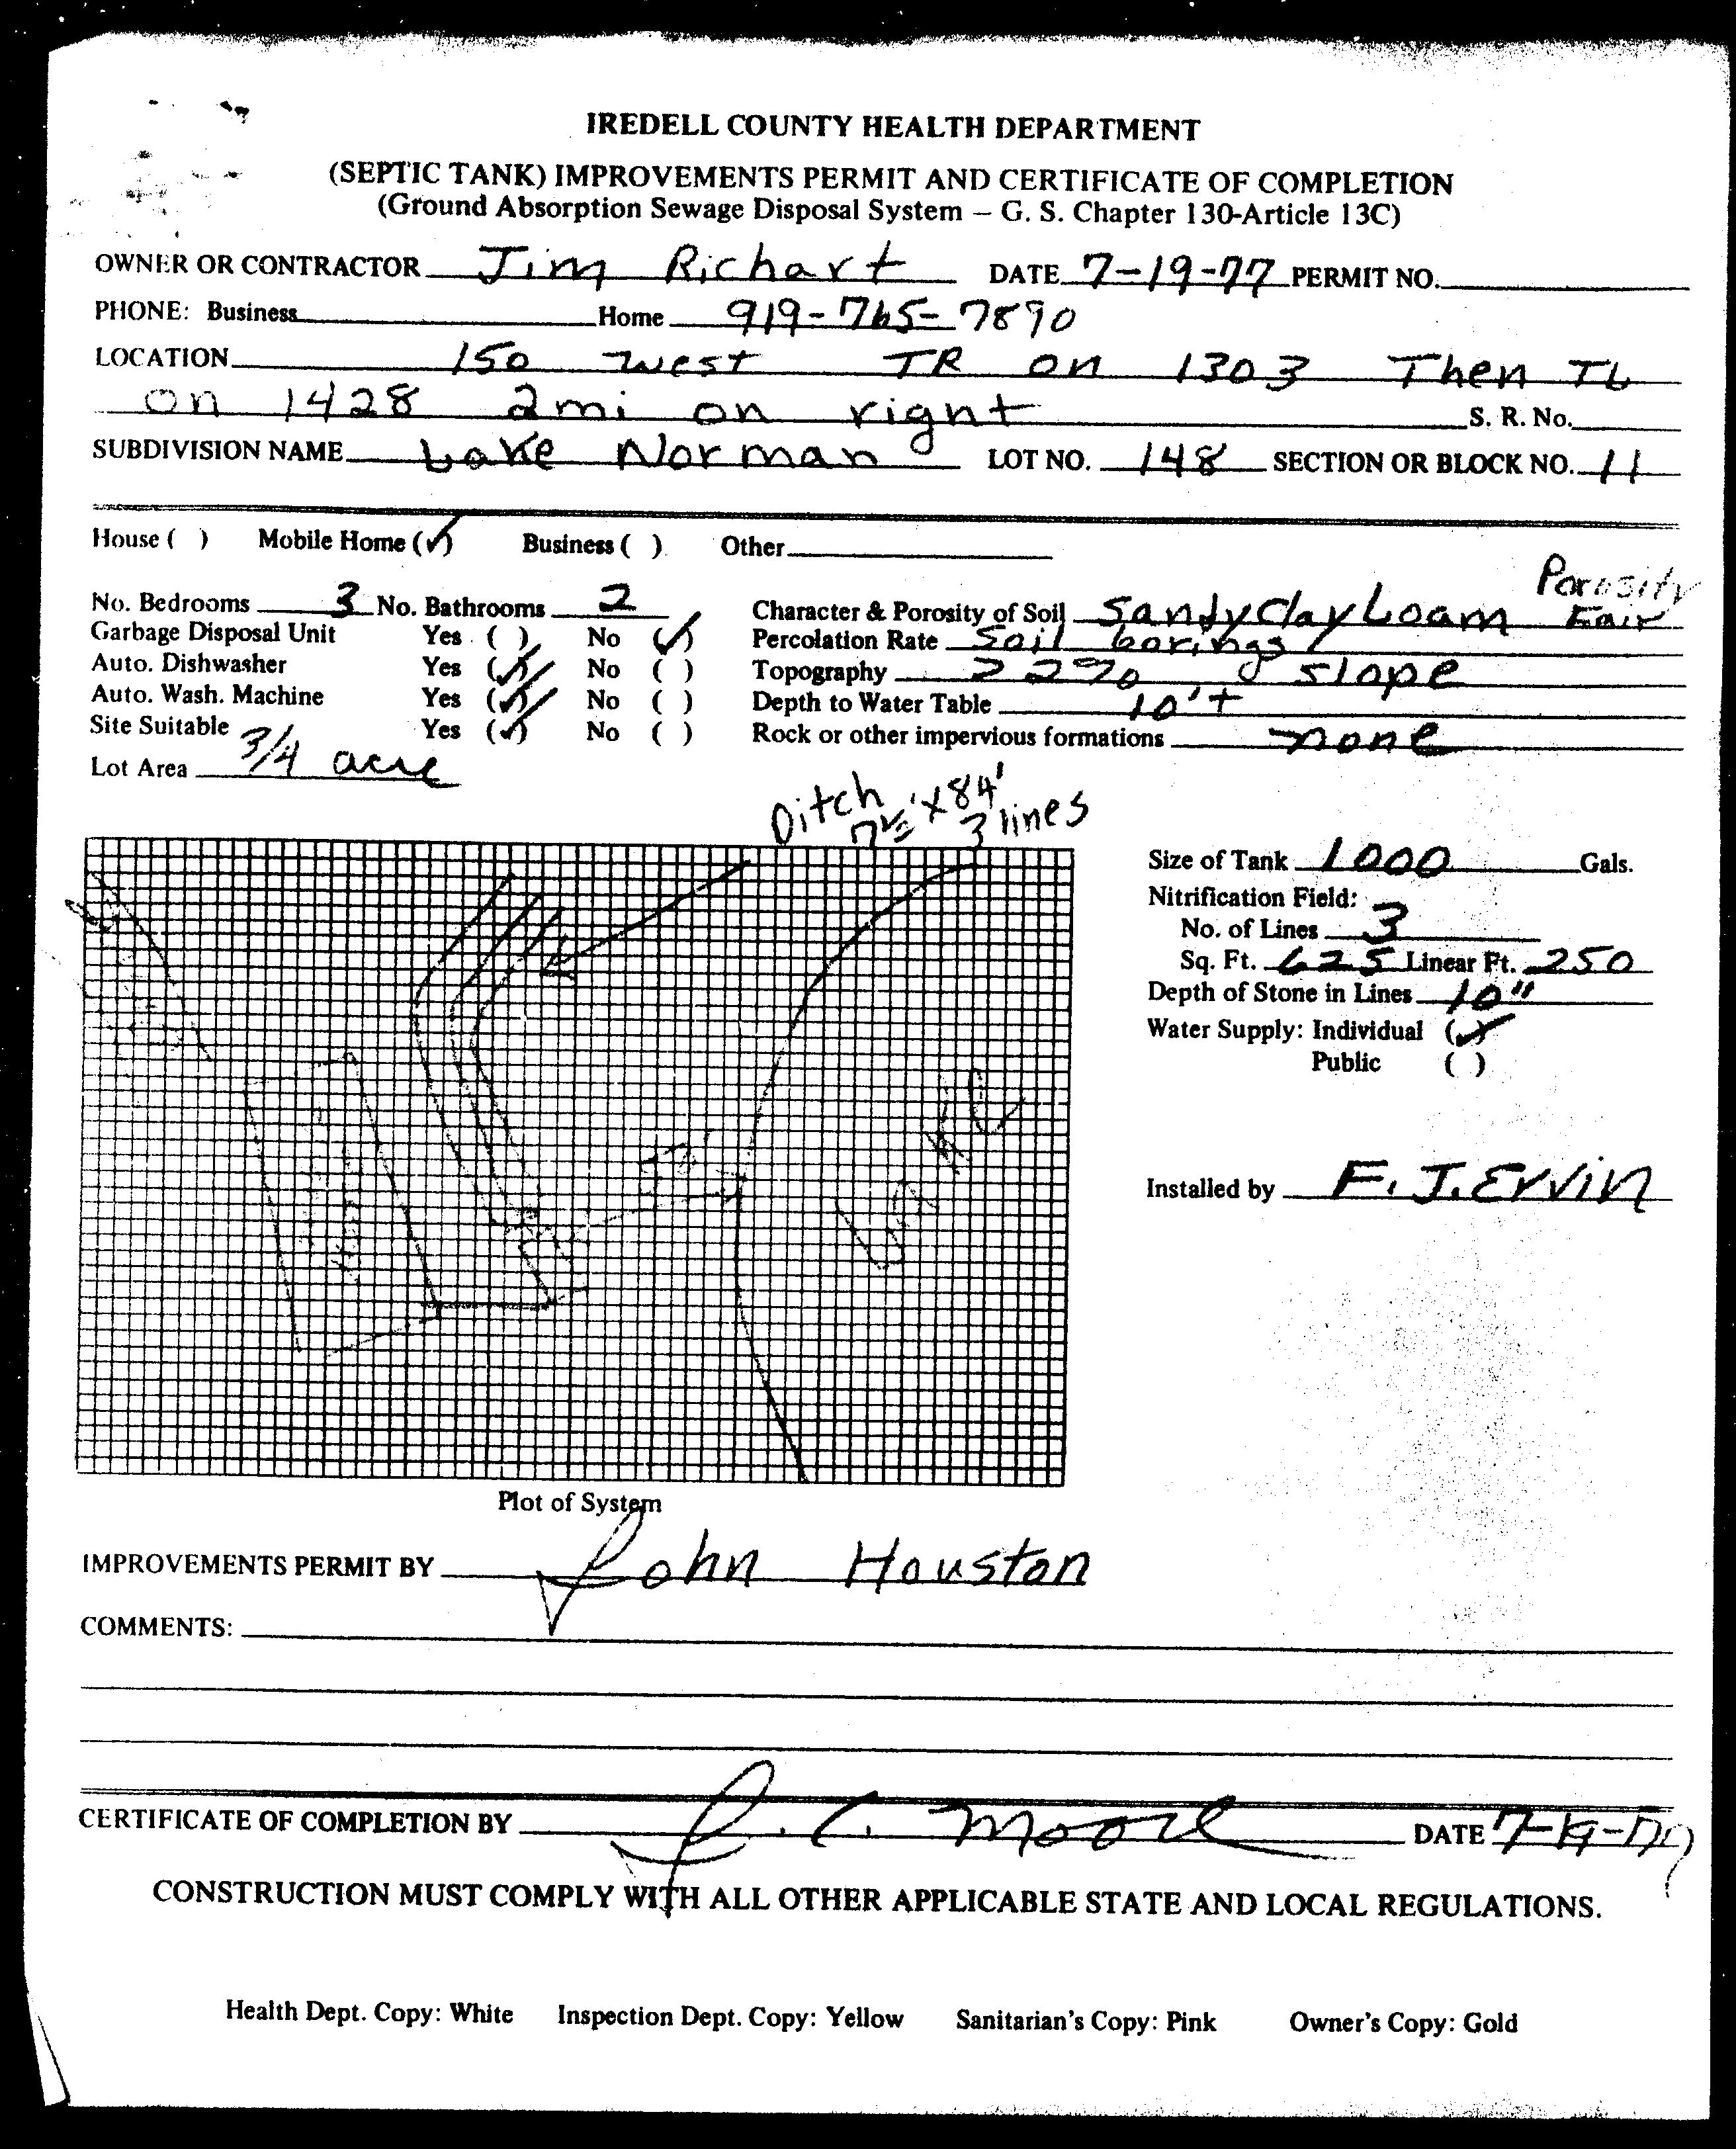 IREDELL COUNTY HEALTH DEPARTMENT
(SEPTIC TANK) IMPROVEMENTS PERMIT AND CERTIFICATE OF COMPLETION
(Ground Absorption Sewage Disposal System – G. S. Chapter 130-Article 13C)
OWNER OR CONTRACTOR Jim Richart DATE 7-19-77 PERMIT NO.
PHONE: Business Home 919-765-7890
LOCATION 150 west TR on 1303 Then TL
on 1428 2mi on right S. R. No.
SUBDIVISION NAME Lake Norman LOT NO. 148 SECTION OR BLOCK NO. 11
House ( ) Mobile Home (✓) Business ( ) Other
Porosity
No. Bedrooms 3 No. Bathrooms 2 Character & Porosity of Soil Sandy Clay Loam Fair
Garbage Disposal Unit Yes ( ) No (✓) Percolation Rate Soil borings
Auto. Dishwasher Yes (✓) No ( ) Topography 22% slope
Auto. Wash. Machine Yes (✓) No ( ) Depth to Water Table 10'+
Site Suitable Yes (✓) No ( ) Rock or other impervious formations none
Lot Area 3/4 acre
Ditch X84'
3 lines
Size of Tank 1000 Gals.
Nitrification Field:
No. of Lines 3
Sq. Ft. 625 Linear Ft. 250
Depth of Stone in Lines 10"
Water Supply: Individual (✓)
Public ( )
Installed by F. J. Ervin
Plot of System
IMPROVEMENTS PERMIT BY John Houston
COMMENTS:
CERTIFICATE OF COMPLETION BY J. C. Moore DATE
CONSTRUCTION MUST COMPLY WITH ALL OTHER APPLICABLE STATE AND LOCAL REGULATIONS.
Health Dept. Copy: White Inspection Dept. Copy: Yellow Sanitarian's Copy: Pink Owner's Copy: Gold